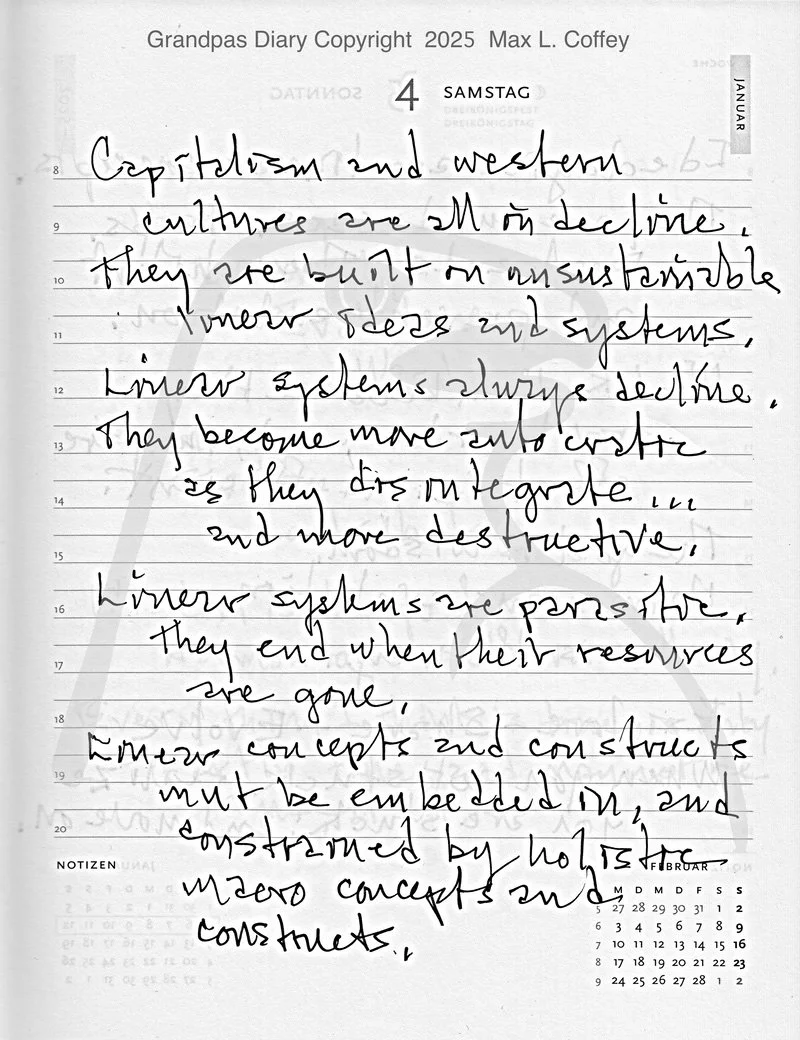 Grandpas Diary Copyright 2025 Max L. Coffey
4 SAMSTAG
JANUAR
8 Capitalism and western
9 cultures are all in decline.
10 They are built on unsustainable
11 linear ideas and systems.
12 Linear systems always decline.
13 They become more autocratic
14 as they disintegrate...
15 and more destructive.
16 Linear systems are parasitic.
17 They end when their resources
18 are gone.
Linear concepts and constructs
19 mut be embedded in, and
20 constrained by holistic
macro concepts and
constructs.
NOTIZEN
FEBRUAR
M D M D F S S
5 27 28 29 30 31 1 2
6 3 4 5 6 7 8 9
7 10 11 12 13 14 15 16
8 17 18 19 20 21 22 23
9 24 25 26 27 28 1 2